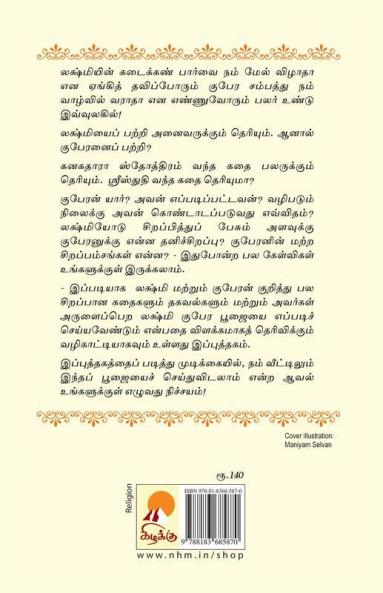 லக்ஷ்மியின் கடைக்கண் பார்வை நம் மேல் விழாதா
என ஏங்கித் தவிப்போரும் குபேர சம்பத்து நம்
வாழ்வில் வராதா என எண்ணுவோரும் பலர் உண்டு
இவ்வுலகில்!
லக்ஷ்மியைப் பற்றி அனைவருக்கும் தெரியும். ஆனால்
குபேரனைப் பற்றி?
கனகதாரா ஸ்தோத்திரம் வந்த கதை பலருக்கும்
தெரியும். ஸ்ரீஸ்துதி வந்த கதை தெரியுமா?
குபேரன் யார்? அவன் எப்படிப்பட்டவன்? வழிபடும்
நிலைக்கு அவன் கொண்டாடப்படுவது எவ்விதம்?
லக்ஷ்மியோடு சிறப்பித்துப் பேசும் அளவுக்கு
குபேரனுக்கு என்ன தனிச்சிறப்பு? குபேரனின் மற்ற
சிறப்பம்சங்கள் என்ன? - இதுபோன்ற பல கேள்விகள்
உங்களுக்குள் இருக்கலாம்.
- இப்படியாக லக்ஷ்மி மற்றும் குபேரன் குறித்து பல
சிறப்பான கதைகளும் தகவல்களும் மற்றும் அவர்கள்
அருளைப்பெற லக்ஷ்மி குபேர பூஜையை எப்படிச்
செய்யவேண்டும் என்பதை விளக்கமாகத் தெரிவிக்கும்
வழிகாட்டியாகவும் உள்ளது இப்புத்தகம்.
இப்புத்தகத்தைப் படித்து முடிக்கையில், நம் வீட்டிலும்
இந்தப் பூஜையைச் செய்துவிடலாம் என்ற ஆவல்
உங்களுக்குள் எழுவது நிச்சயம்!
Cover illustration:
Maniyam Selvan
ரூ.140
Religion
கிழக்கு
ISBN 978-81-8368-587-0
9 788183 685870
www.nhm.in/shop